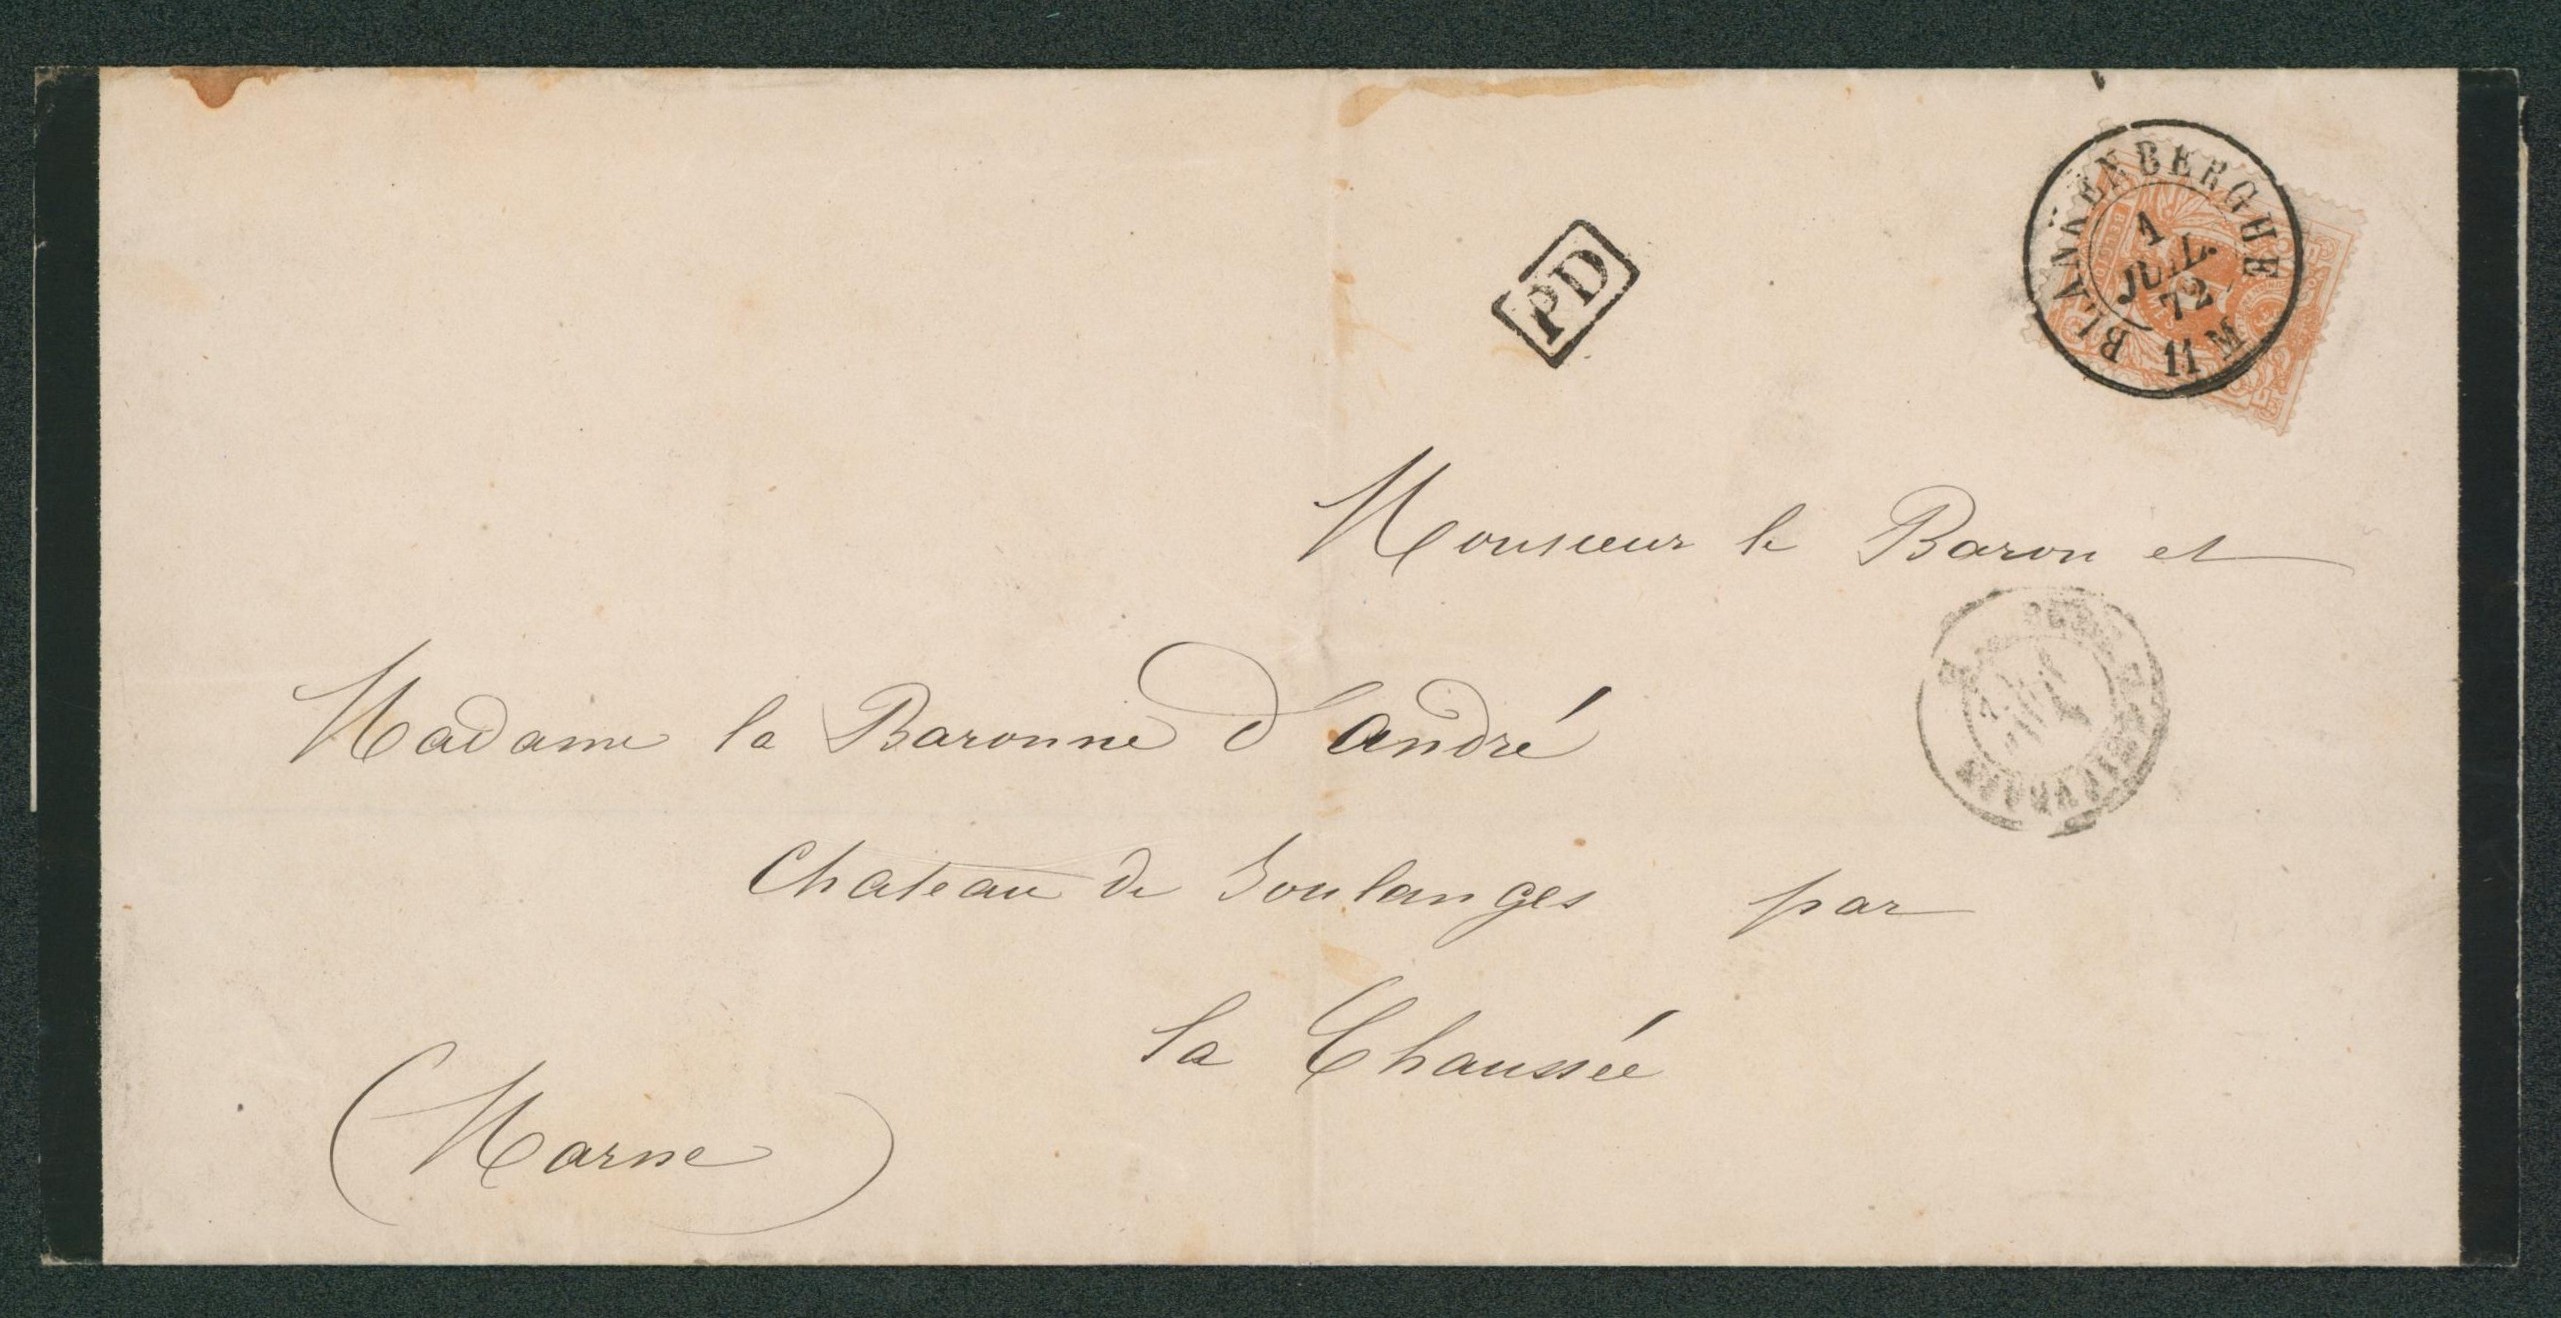 BLANKENBERGHE
1
JUIL.
72
11 M
PD
Monsieur le Baron et
Madame la Baronne d'André
Chateau de Soulanges par
la Chaussée
(Marne)